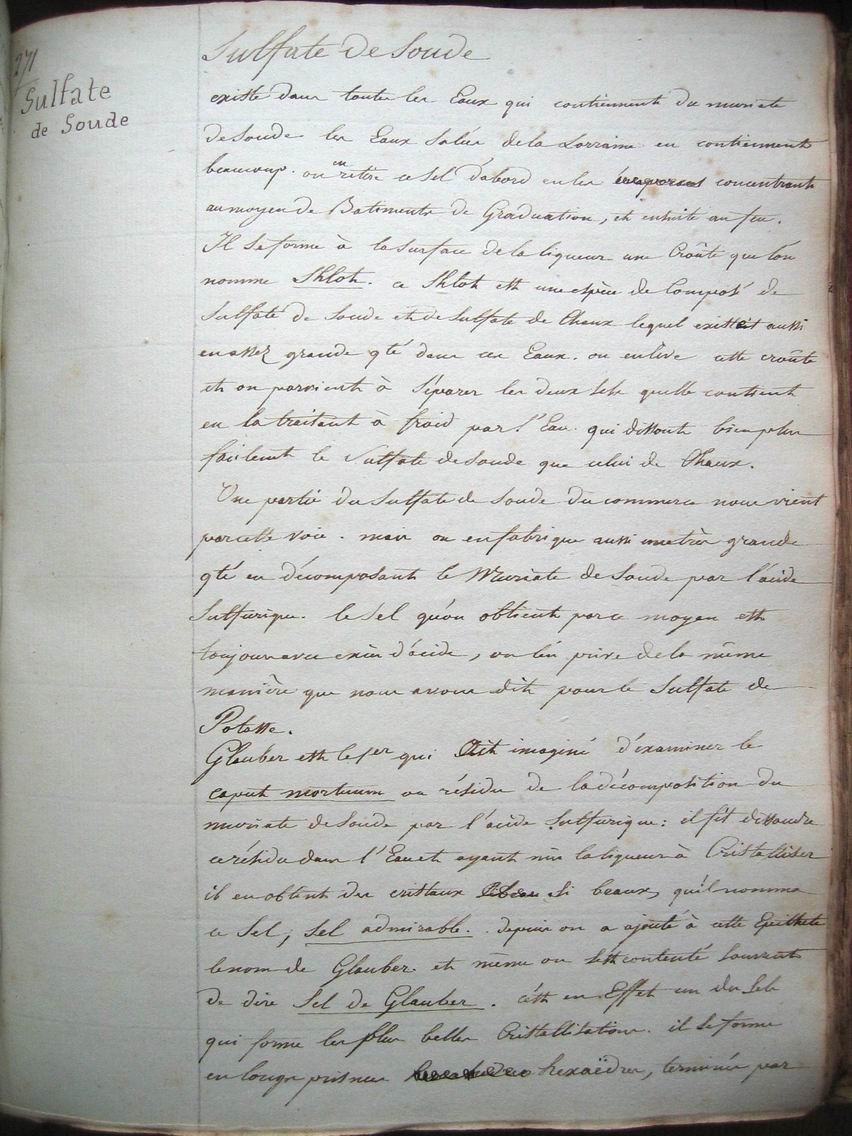 271
Sulfate
de Soude
Sulfate de Soude
existe dans toutes les Eaux qui contiennent du muriate
de Soude les Eaux Salées de la Lorraine en contiennent
beaucoup. on en retire ce Sel d'abord en les concentrant
au moyen de Batiments de Graduation, et ensuite au feu.
Il se forme à la surface de la liqueur une Croûte que l'on
nomme Shlot. ce Shlot est une espèce de Composé de
Sulfate de Soude et de Sulfate de Chaux lequel existe aussi
en assez grande qté dans ces Eaux. on enlève cette croûte
et on parvient à Séparer les deux Sels quelle contient
en la traitant à froid par l'Eau qui dissout bien plus
facilement le Sulfate de Soude que celui de Chaux.
Une partie du Sulfate de Soude du commerce nous vient
par cette voie. mais on en fabrique aussi une très grande
qté en décomposant le Muriate de Soude par l'acide
Sulfurique. le Sel qu'on obtient par ce moyen est
toujours avec excès d'acide, on l'en prive de la même
manière que nous avons dit pour le Sulfate de
Potasse.
Glauber est le 1er qui ait imaginé d'examiner le
caput mortuum ou résidu de la décomposition du
muriate de Soude par l'acide Sulfurique: il fit dissoudre
ce résidu dans l'Eau et ayant mis la liqueur à Cristalliser
il en obtint des cristaux si beaux, qu'il nomma
ce Sel, Sel admirable. depuis on a ajouté à cette Epithete
le nom de Glauber et même on s'est contenté souvent
de dire Sel de Glauber. c'est en Effet un des Sels
qui forme les plus belles Cristallisations. il se forme
en longs prismes hexaëdres, terminés par